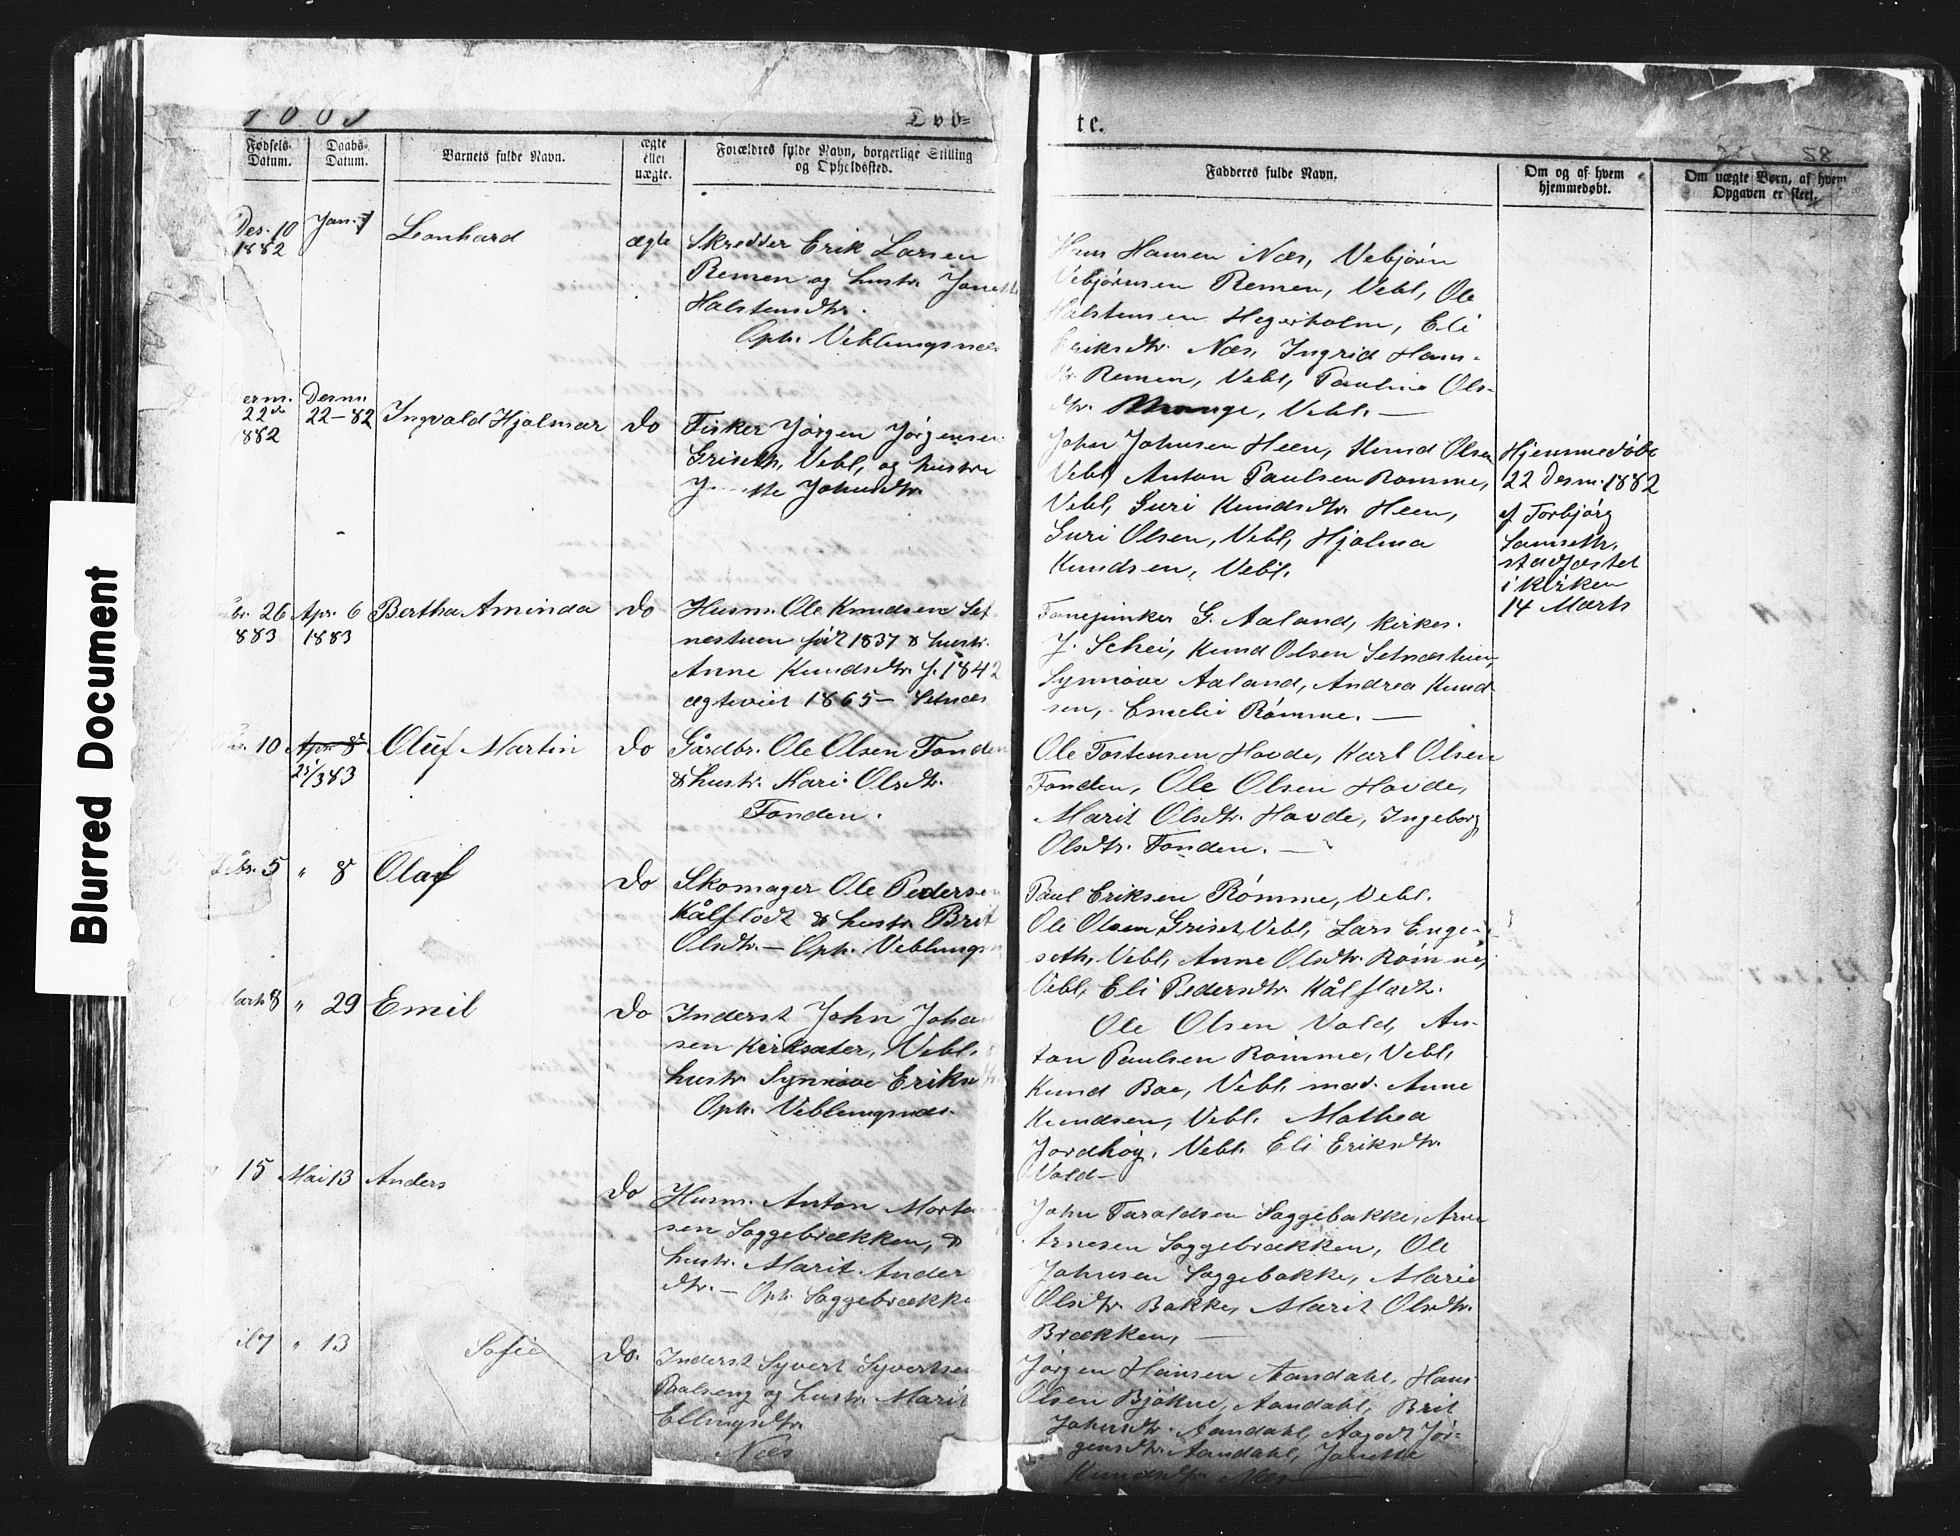 Blurred Document
1883
Døb=
te.
58
Fødsels-
Datum.
Daabs-
Datum.
Barnets fulde Navn.
ægte
eller
uægte.
Forældres fulde Navn, borgerlige Stilling
og Opholdssted.
Fadderes fulde Navn.
Om og af hvem
hjemmedøbt.
Om uægte Børn, af hvem
Opgaven er skeet.
Des. 10
1882
Jan. 7
Leonhard
ægte
Skredder Erik Larsen
Remen og hustr.
Halstensdtr.
Oph. Veblungsnæs
Hans Hansen Næs, Vebjörn
Vebjörnsen Remen, Vebl, Ole
Halstensen Hegerholm, Eli
Eriksdtr. Næs, Ingrid Hans-
dtr. Remen, Vebl, Pauline Ols-
dtr. Vebl. —
22de
1882
Desm.
22-82
Ingvald Hjalmar
do
Fisker Jörgen Jörgensen
Griseth, Vebl, og hustru
Johnsdtr.
John Johnsen Heen, Knud Olsen
Vebl, Anton Paulsen Romme,
Vebl, Guri Knudsdtr. Heen,
Guri Olsen, Vebl, Hjalma
Knudsen, Vebl.
Hjemmedöbt
22 Desm. 1882
af Torbjørg
stadfæstet
i Kirken
14 Marts
26
883
Apr. 6
1883
Bertha Aminda
do
Husm. Ole Knudsen Set-
nestuen föd 1837 & hustr.
Anne Knudsdtr. f. 1842
ægteviet 1865 — Setnæs
Fanejunker G. Aaland, Kirkes.
J. Schei, Knud Olsen Setnæstuen,
Synnöve Aaland, Andrea Knud-
sen, Emelie Römme. —
10
Apr. 8
25/3 83
Oluf Martin
do
Gårdbr. Ole Olsen Fonden
& hustr. Kari Olsdtr.
Fonden.
Ole Tostensen Hovde, Karl Olsen
Fonden, Ole Olsen Hovde,
Marit Olsdtr. Hovde, Ingeborg
Olsdtr. Fonden. —
Febr. 5
" 8
Olaf
do
Skomager Ole Pedersen
Kålflodt & hustr. Brit
Olsdtr. — Oph. Veblungs
Paul Eriksen Römme, Vebl.
Ole Olsen Griset, Vebl, Lars Enge-
seth, Vebl, Anne Olsdtr. Römme,
Vebl, Eli Pedersdtr. Kålflodt.
Marts 8
" 29
Emil
do
Inderst John Johan
sen Kirksæter, Vebl.
hustr. Synnöve Eriksd
Oph. Veblungsnæs.
Ole Olsen Vold, An-
ton Paulsen Römme, Vebl,
Knud Boe, Vebl. mad. Anne
Knudsen, Vebl. Mathea
Jordhöy, Vebl. Eli Eriksdtr.
Vold —
15
Mai 13
Anders
do
Husm. Anton Morten
sen Soggebrækken, &
hustr. Marit Anders
dtr. — Oph. Soggebrække
John Taraldsen Soggebakke, Arne
Arnesen Soggebrækken, Ole
Johnsen Soggebakke, Marie
Olsdtr. Bakke, Marit Olsdtr.
Brækken, —
il 7
" 13
Sofie
do.
Inderst Syvert Syvertsen
og hustr. Marit
Ellingsdtr.
Næs
Jörgen Hansen Aandahl, Hans
Olsen Aandahl, Brit
Johnsdtr. Aandahl, Aagodt Jör-
gensdtr. Aandahl, Janette
Knudsdtr. Næs —